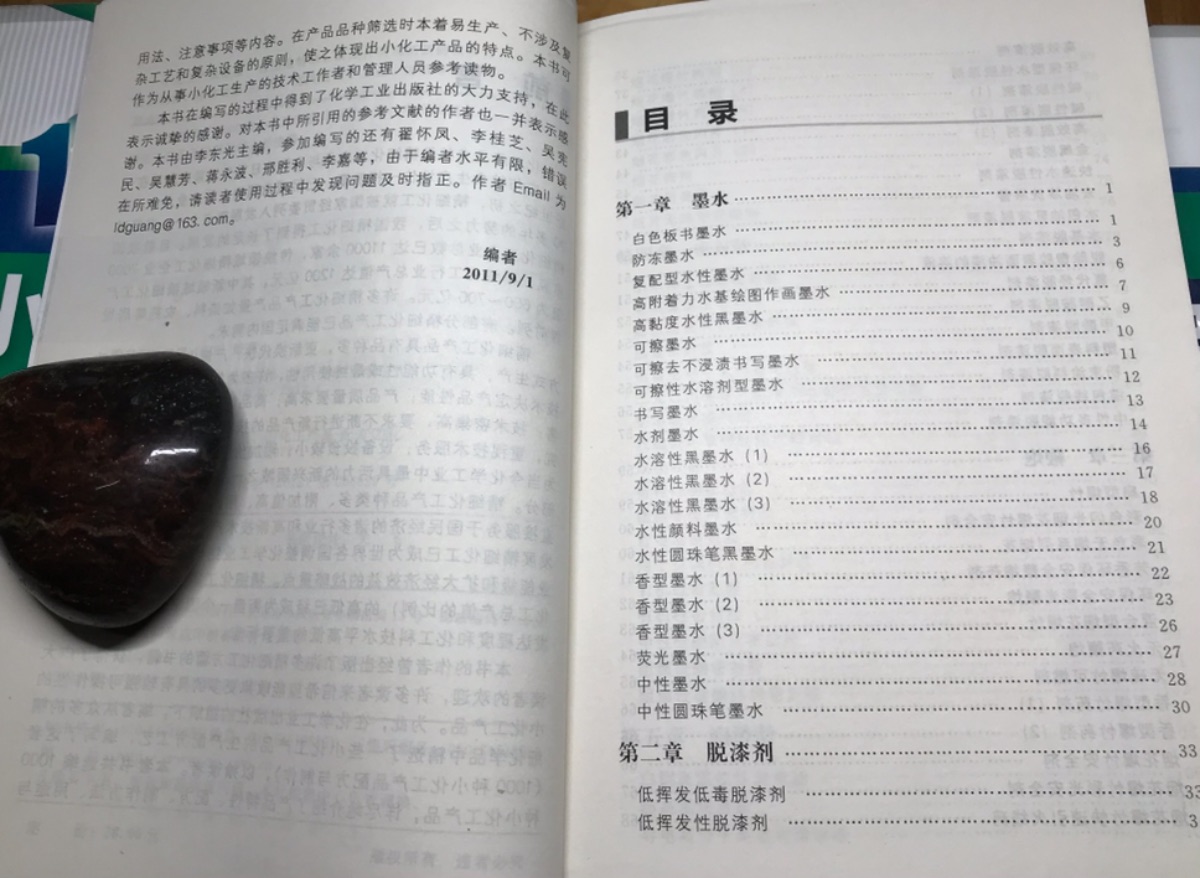 用法、注意事项等内容。在产品品种筛选时本着易生产、不涉及复
杂工艺和复杂设备的原则，使之体现出小化工产品的特点。本书可
作为从事小化工生产的技术工作者和管理人员参考读物。
本书在编写的过程中得到了化学工业出版社的大力支持，在此
表示诚挚的感谢。对本书中所引用的参考文献的作者也一并表示感
谢。本书由李东光主编，参加编写的还有翟怀凤、李桂芝、吴宪
民、吴慧芳、蒋永波、邢胜利、李嘉等，由于编者水平有限，错误
在所难免，请读者使用过程中发现问题及时指正。作者 Email 为
ldguang@163.com。
编者
2011/9/1
目 录
第一章 墨水 1
白色板书墨水 1
防冻墨水 3
复配型水性墨水 6
高附着力水基绘图作画墨水 7
高黏度水性黑墨水 9
可擦墨水 10
可擦去不浸渍书写墨水 11
可擦性水溶剂型墨水 12
书写墨水 13
水剂墨水 14
水溶性黑墨水（1） 16
水溶性黑墨水（2） 17
水溶性黑墨水（3） 18
水性颜料墨水 20
水性圆珠笔黑墨水 21
香型墨水（1） 22
香型墨水（2） 23
香型墨水（3） 26
荧光墨水 27
中性墨水 28
中性圆珠笔墨水 30
第二章 脱漆剂 33
低挥发低毒脱漆剂 33
低挥发性脱漆剂